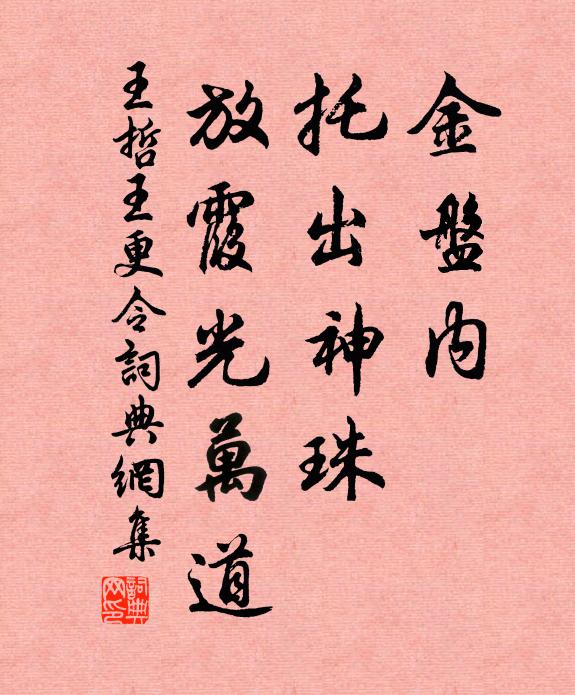 金盤內
托出神珠
放霞光萬道
王哲王更令詞典網集
詞典網印